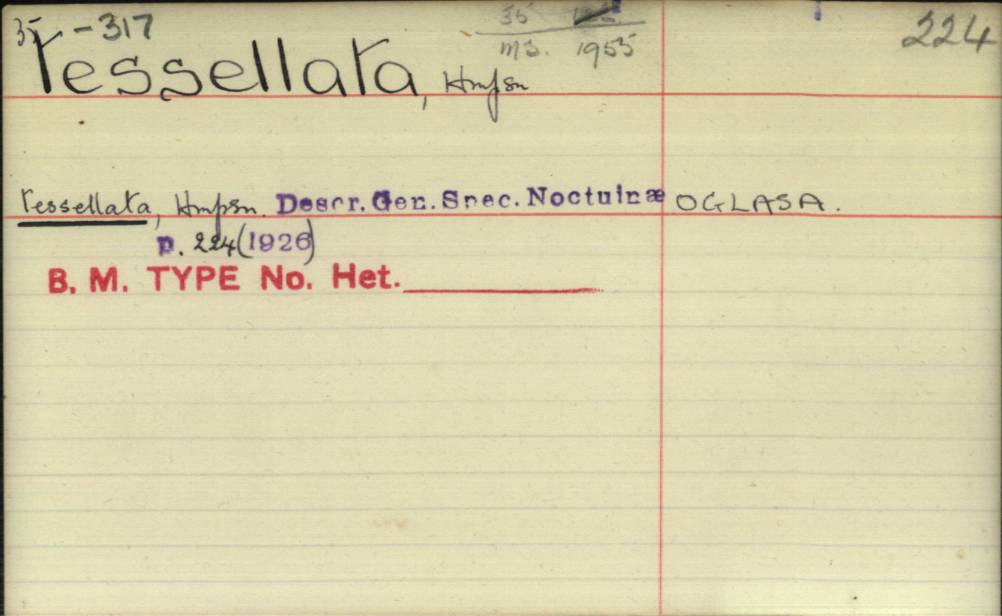 35 -317
35
ms. 1955
224
tessellata, Hmpsn
tessellata, Hmpsn. Descr. Gen. Spec. Noctuinæ OGLASA.
p. 224 (1926)
B. M. TYPE No. Het.